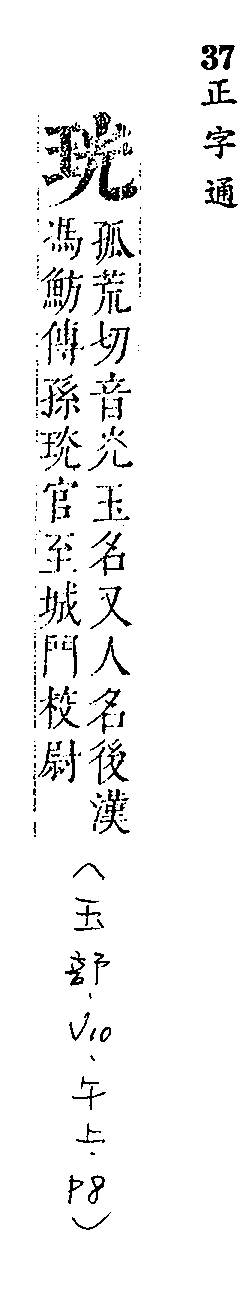 37
正字通
珖
孤荒切音光玉名又人名後漢
馮魴傳孫珖官至城門校尉
(玉部．V10、午上．P8)